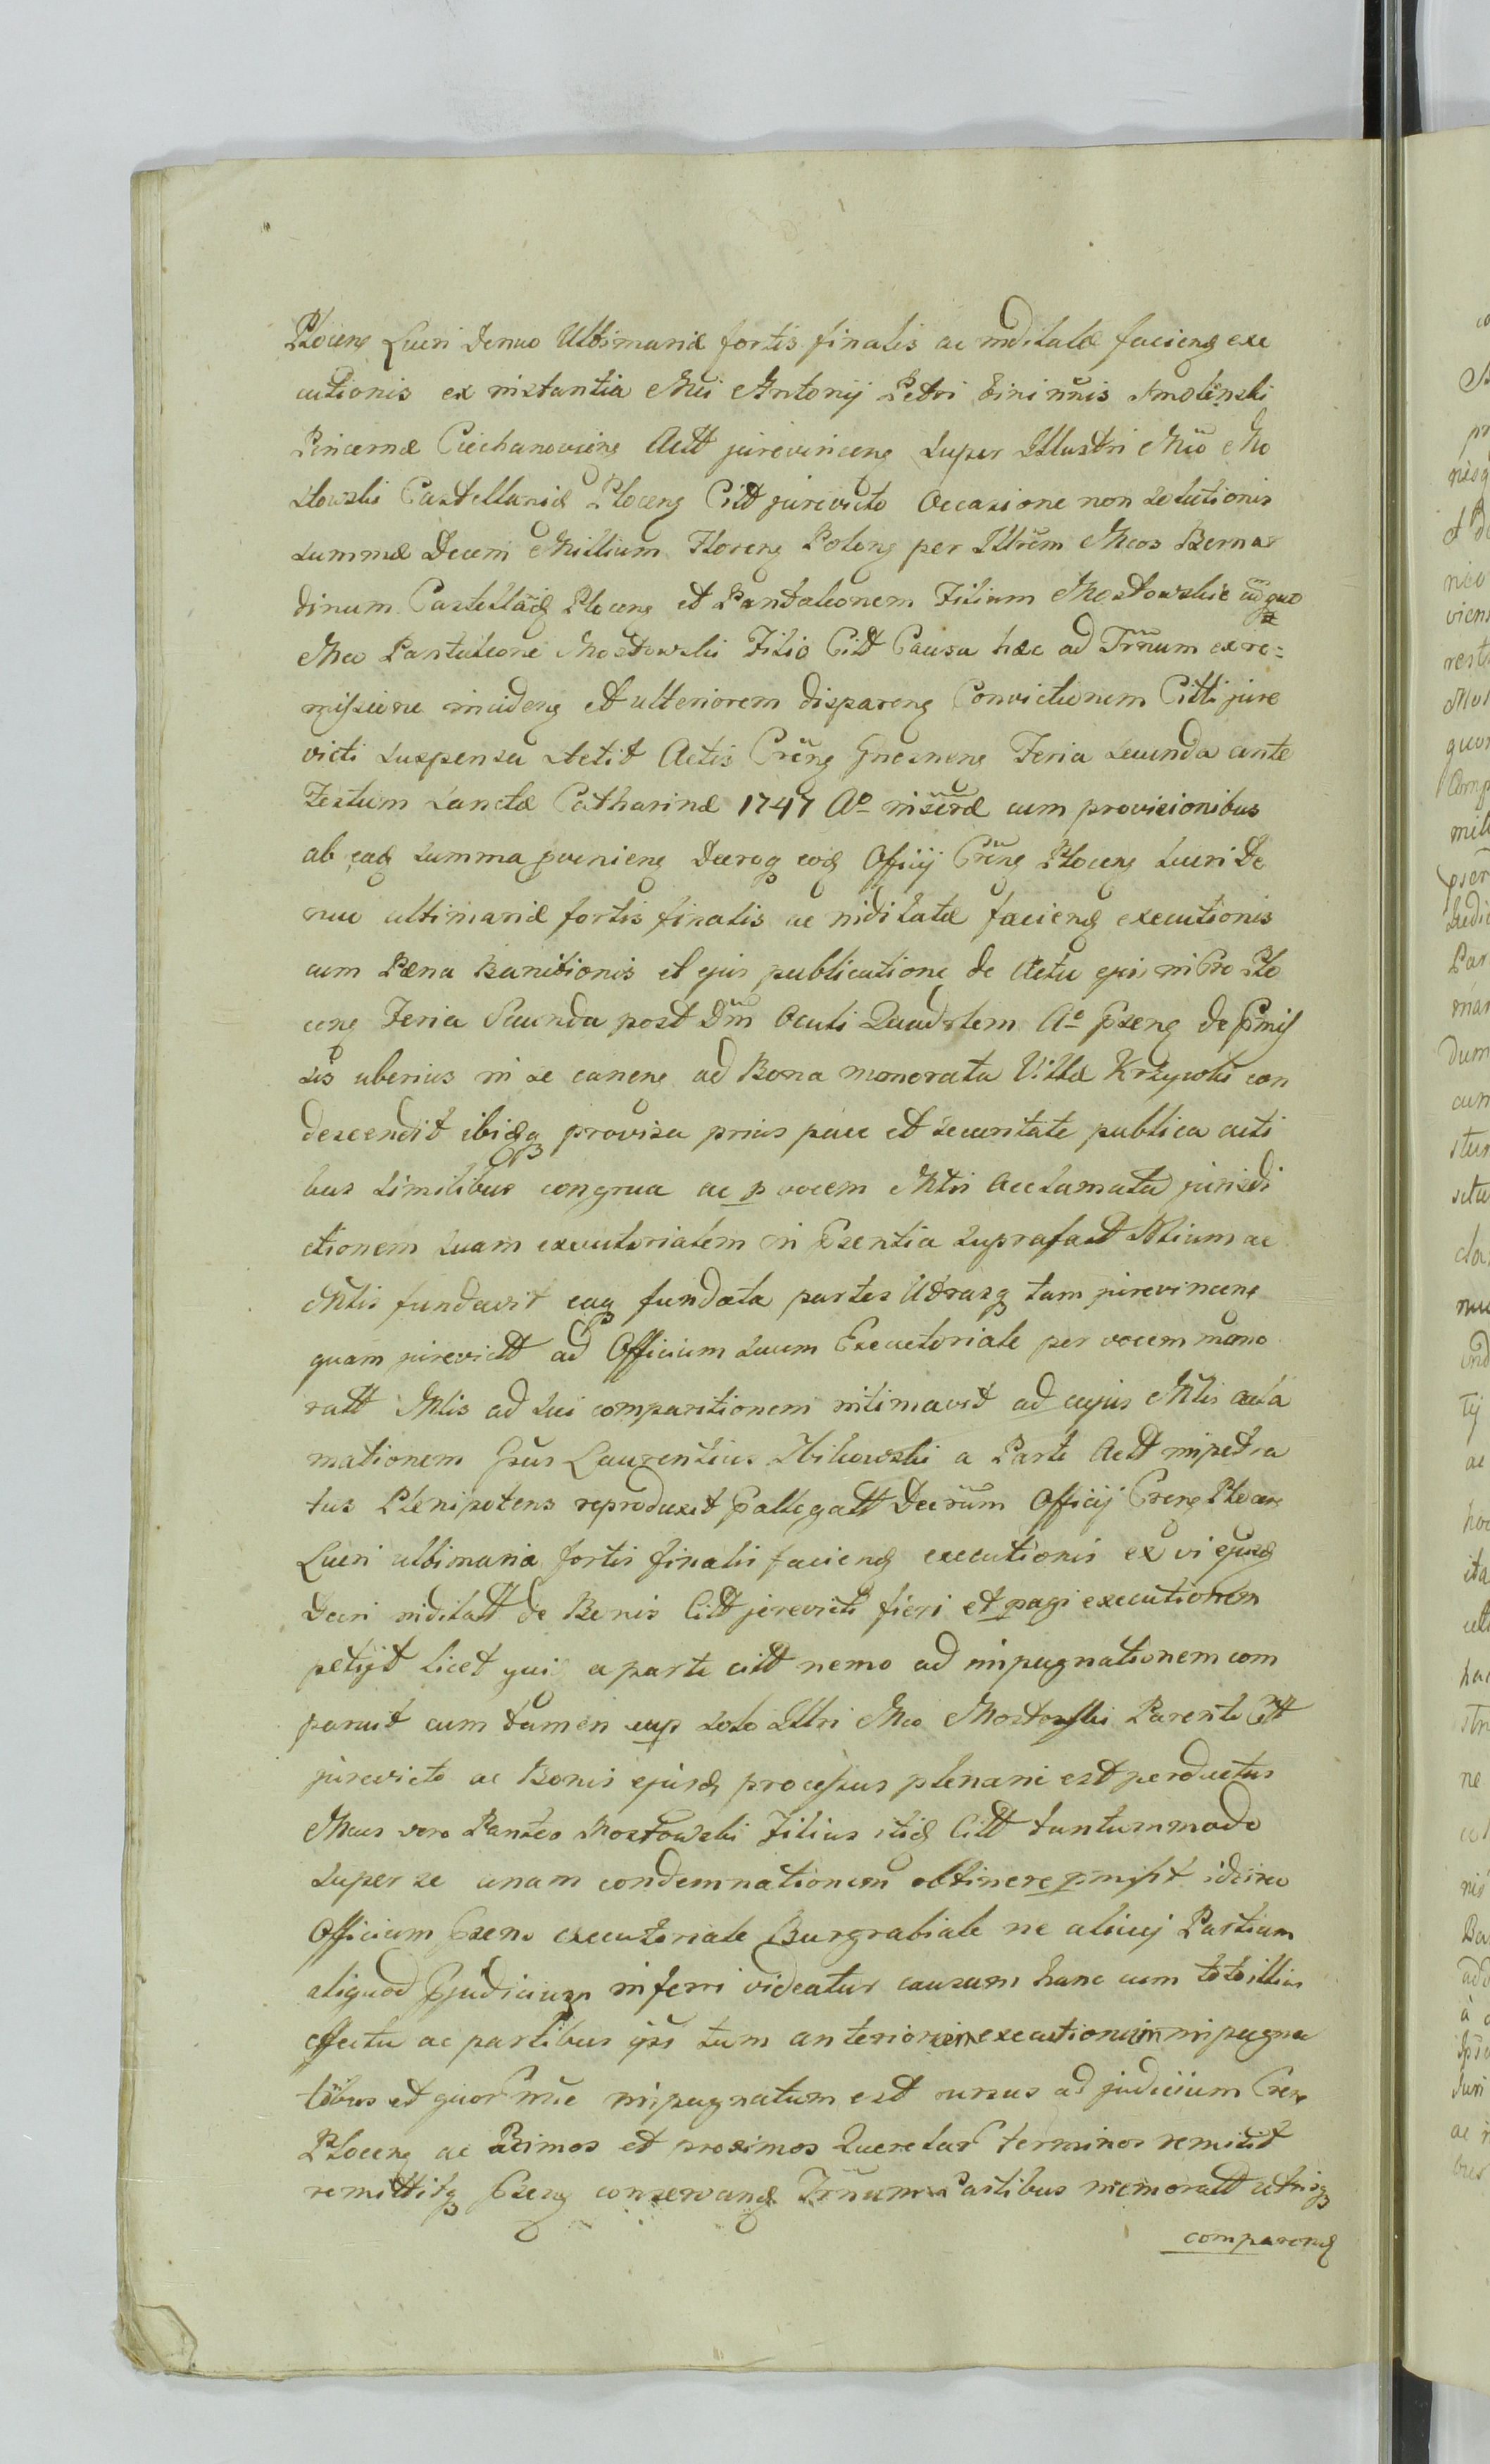 Plocen Lucri Denuo Ultimariæ fortis finalis ac inditatæ faciend exe
cutionis ex instantia Mci Antonij Petri binimis Smolinski
Pincernæ Ciechanoviens Actt jurevincens super Illustri Mco Mo
stowski Castellanid Plocens Citt jurevicto Occasione non Solutionis
summæ Decem Millium Floreng Polong per Illrem Mcos Bernar
dinum Castellād Plocens et Pantaleonem Filium Mostowskie
Mco Pantaleone Mostowski Filio Citt Causa hæc ad Trnum ex re=
missione incideng et ulteriorem disparens Convictionem Citti jure
victi suspensa stetit Actis Crens Gnesnens Feria secunda ante
Festum Sanctæ Catharinæ 1747 Ao cum provisionibus
ab ead summa pveniens Decroq eod Officij Crens Plocens Lucri De
nuo ultimariæ fortis finalis ac inditatæ faciend executionis
cum Pæna Banitionis et ejus publicatione de Actu ejus in Cro Plo
cens Feria Secunda post Dm Oculi Quadlem Ao Psens de Pmis
sis uberius in se canens ad Bona memorata Villæ Krzywki con
descendit ibidq provisa prius pace et securitate publica acti
bus similibus congrua ac p vocem Mtri Acclamata jurisdi
ctionem suam executorialem in Psentia suprafatt Nblium ac
Mtlis fundavit eaq fundata partes Utrasq tam jurevincens
quam jurevictt ad Officium suum Executoriale per vocem memo
ratt Mtlis ad sui comparitionem intimavit ad cujus Mtlis acla
mationem Gsus Laurentius Zbikowski a Parte Actt impetra
tus Plenipotens reproduxit Pallegatt Decrum Officij Crens Plocens
Lucri ultimaria fortis finalis faciend executionis ex vi ejusd
Decri inditatt de Bonis Citt jurevicti fieri et pagi executionem
petijt licet qui a parte citt nemo ad impugnationem com
paruit cum tamen sup solo Illri Mco Mostowski Parente Citt
jurevicto ac Bonis ejusd processus plenarie est perductus
Mcus vero Panteo Mostowski Filius itid Citt tantummodo
super se unam condemnationem obtinere pmisit idcirco
Officium Psens executoriale Burgrabiale ne alicuj Partium
aliquod Pjudicium inferri videatur causam hanc cum toto illius
effectu ac partibus ijs tum anteriorem executionem impugna
tibus et quor nuc impugnatum est rursus ad judicium Crens
Plocens ac Primos et proximos Querelar terminos remisit
remittitq Psens conservand Trnum Partibus memoratt utrisq
comparend